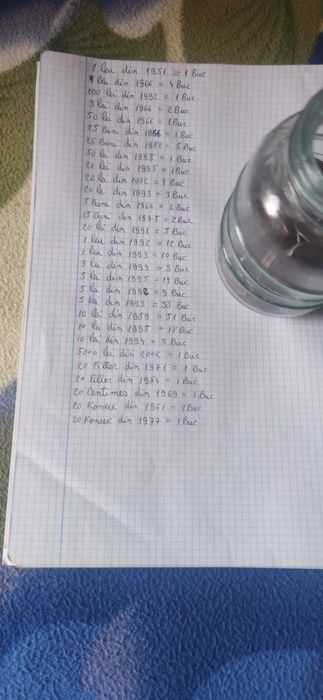 1 leu din 1951 = 1 Buc
1 leu din 1966 = 4 Buc
100 lei din 1992 = 1 Buc
3 lei din 1966 = 2 Buc
50 lei din 1966 = 1 Buc
25 Bani din 1966 = 1 Buc
25 Bani din 1982 = 5 Buc
50 lei din 1995 = 1 Buc
20 lei din 1995 = 1 Buc
20 la din 1992 = 4 Buc
20 le din 1993 = 3 Buc
5 Bani din 1966 = 2 Buc
15 Bani din 1975 = 2 Buc
20 la din 1991 = 5 Buc
1 leu din 1992 = 12 Buc
1 leu din 1993 = 10 Buc
5 la din 1994 = 3 Buc
5 la din 1995 = 14 Buc
5 la din 1992 = 9 Buc
5 la din 1993 = 38 Buc
10 la din 1989 = 51 Buc
10 la din 1995 = 18 Buc
10 la din 1994 = 3 Buc
5000 lei din 2002 = 1 Buc
20 Filler din 1971 = 1 Buc
20 Filler din 1984 = 1 Buc
20 Centimes din 1969 = 1 Buc
20 din 1961 = 1 Buc
20 din 1977 = 1 Buc